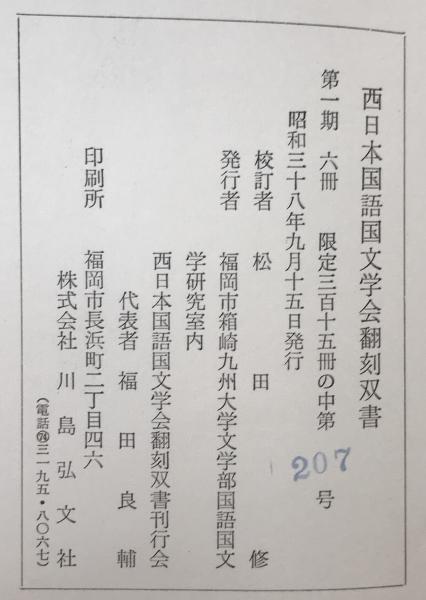 西日本国語国文学会翻刻双書
第一期 六冊 限定三百十五冊の中第 207 号
昭和三十八年九月十五日発行
校訂者 松田修
発行者 福岡市箱崎九州大学文学部国語国文
学研究室内
西日本国語国文学会翻刻双書刊行会
代表者 福田良輔
印刷所 福岡市長浜町二丁目四六
株式会社 川島弘文社
(電話㉔三一九五・八〇六七)